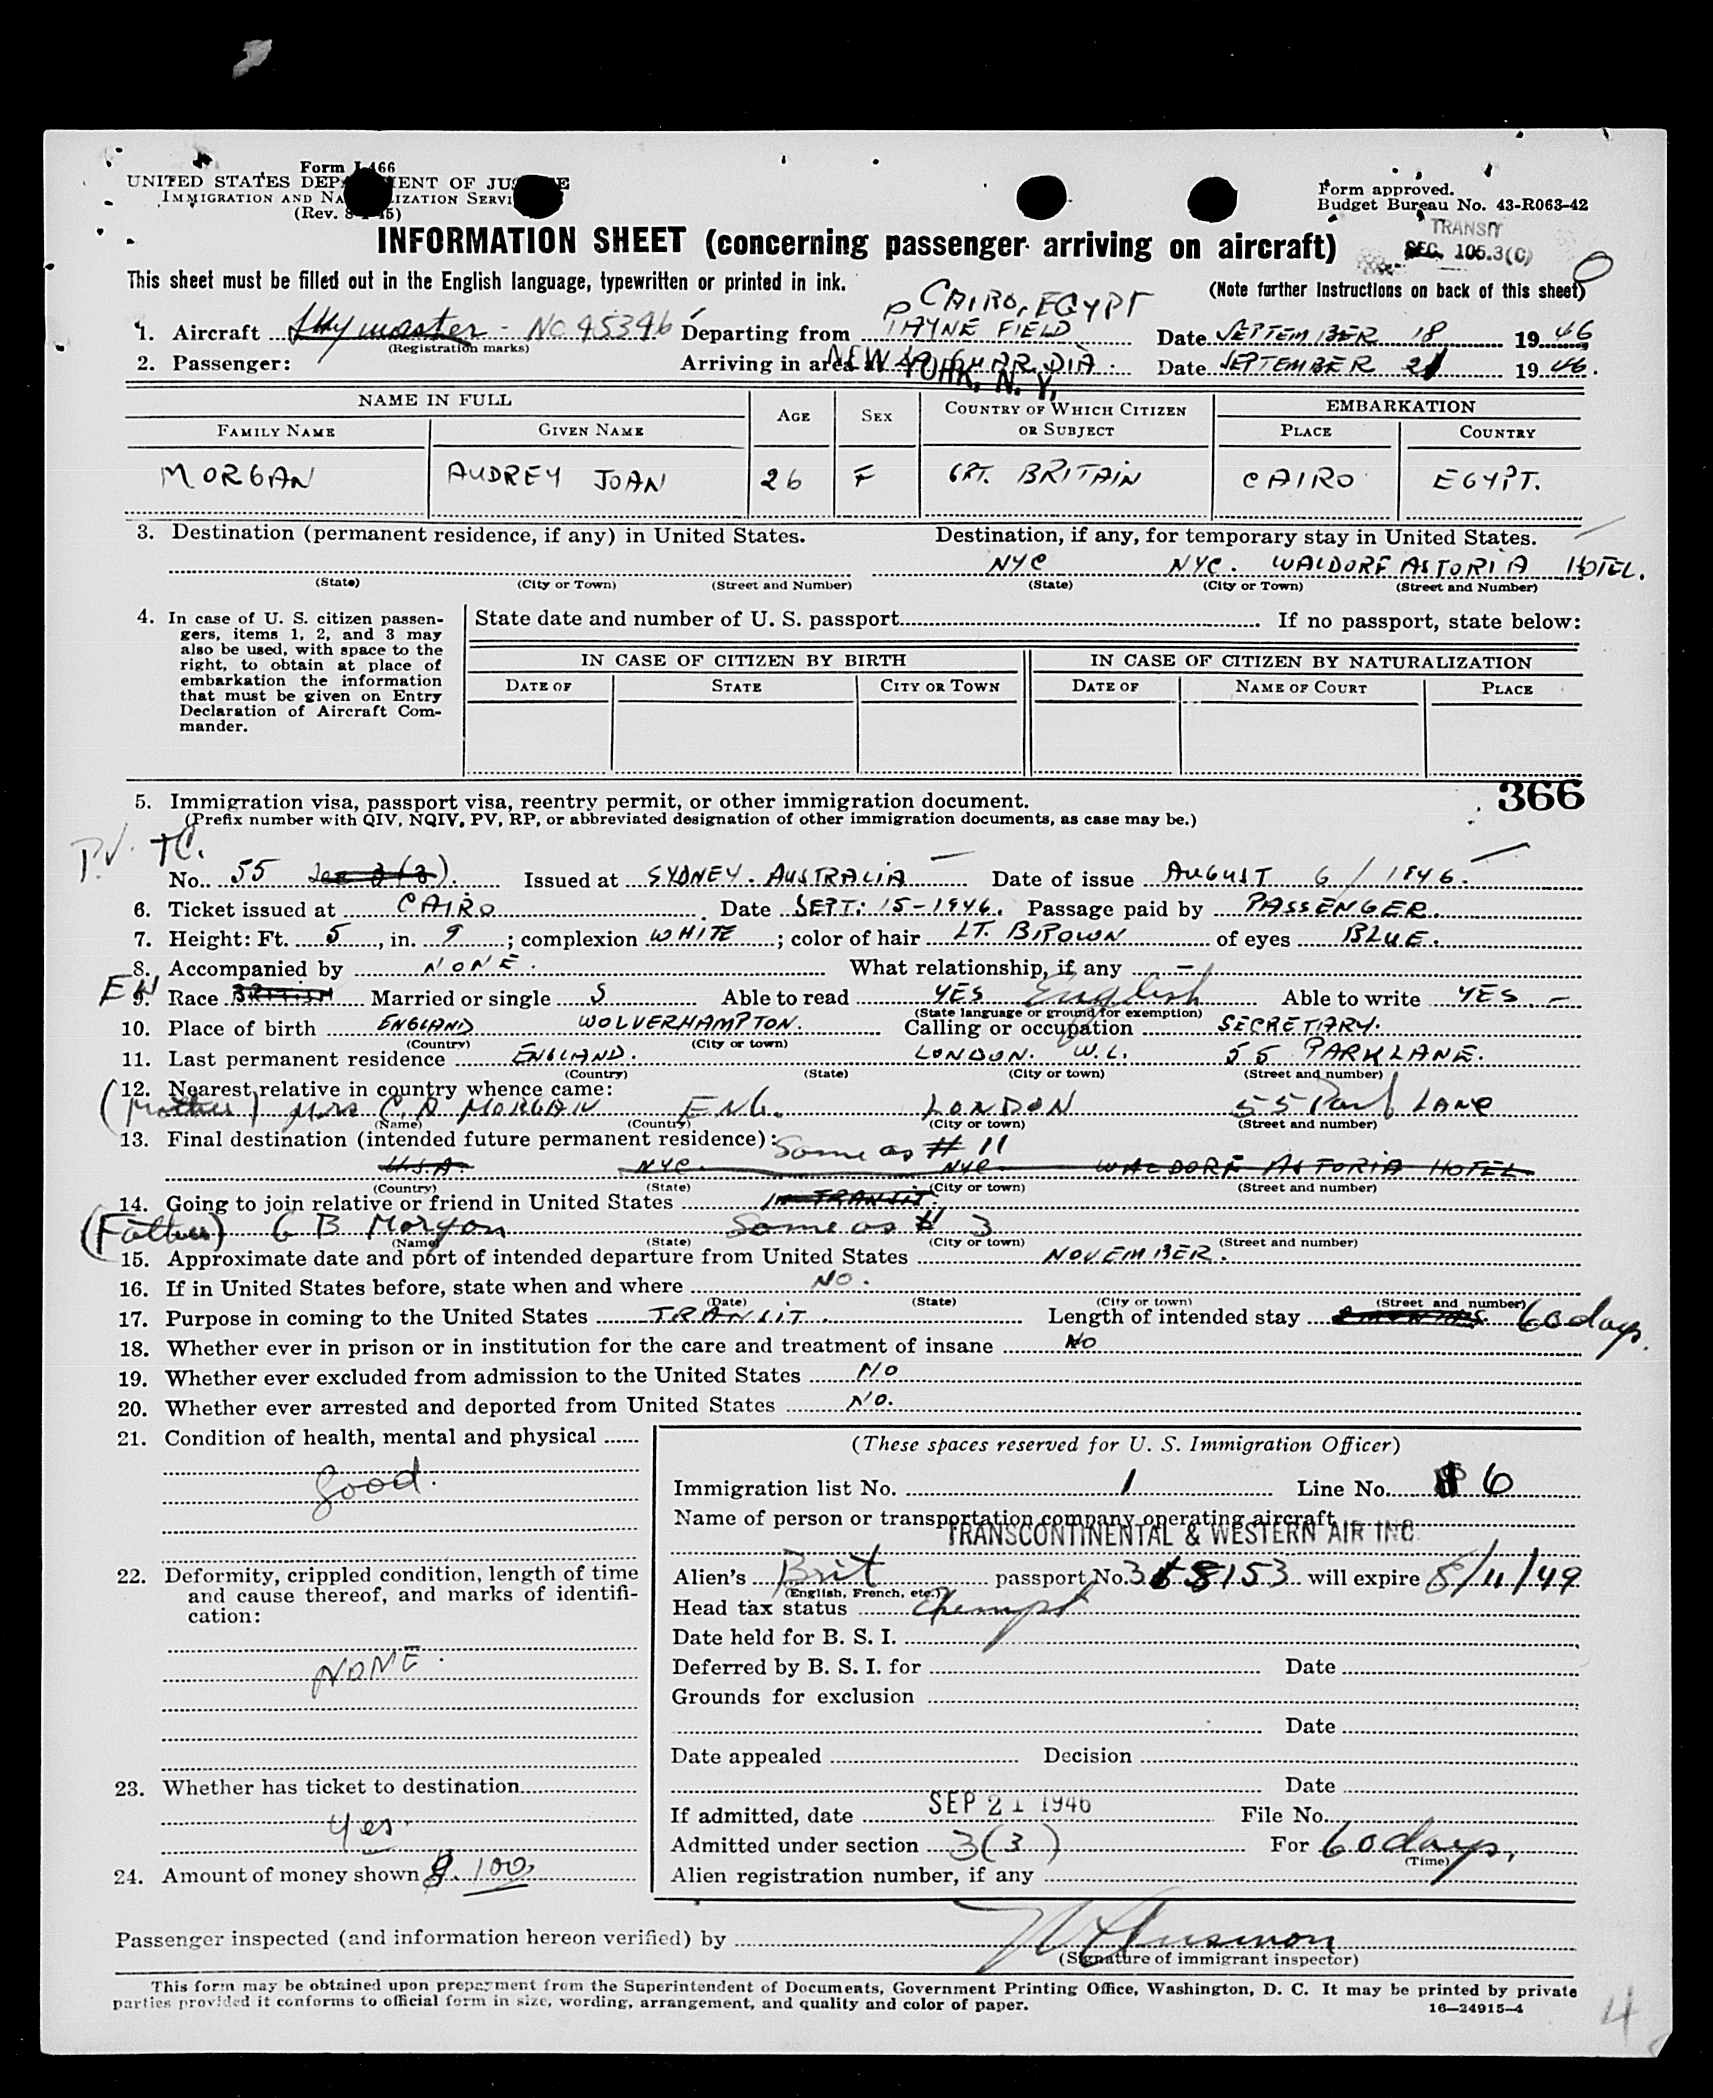 Form I-466
UNITED STATES DEPARTMENT OF JUSTICE
IMMIGRATION AND NATURALIZATION SERVICE
(Rev. 8-1-45)
Form approved.
Budget Bureau No. 43-R063-42
TRANSIT
SEC. 105.3(C)
INFORMATION SHEET (concerning passenger arriving on aircraft)
This sheet must be filled out in the English language, typewritten or printed in ink.
(Note further instructions on back of this sheet)
CAIRO, EGYPT
1. Aircraft Skymaster - NC 95396 Departing from PAYNE FIELD Date SEPTEMBER 18 1946
(Registration marks)
2. Passenger: Arriving in area at NEW YORK, N. Y. LA GUARDIA Date SEPTEMBER 21 1946.
NAME IN FULL AGE SEX COUNTRY OF WHICH CITIZEN OR SUBJECT EMBARKATION
FAMILY NAME GIVEN NAME PLACE COUNTRY
MORGAN AUDREY JOAN 26 F GRT. BRITAIN CAIRO EGYPT.
3. Destination (permanent residence, if any) in United States. Destination, if any, for temporary stay in United States.
NYC NYC. WALDORF ASTORIA HOTEL.
(State) (City or Town) (Street and Number) (State) (City or Town) (Street and Number)
4. In case of U. S. citizen passengers, items 1, 2, and 3 may also be used, with space to the right, to obtain at place of embarkation the information that must be given on Entry Declaration of Aircraft Commander.
State date and number of U. S. passport If no passport, state below:
IN CASE OF CITIZEN BY BIRTH IN CASE OF CITIZEN BY NATURALIZATION
DATE OF STATE CITY OR TOWN DATE OF NAME OF COURT PLACE
366
5. Immigration visa, passport visa, reentry permit, or other immigration document.
(Prefix number with QIV, NQIV, PV, RP, or abbreviated designation of other immigration documents, as case may be.)
P.V. TC.
No. 55 Sec 3 (3). Issued at SYDNEY. AUSTRALIA Date of issue AUGUST 6 / 1946.
6. Ticket issued at CAIRO Date SEPT: 15-1946. Passage paid by PASSENGER.
7. Height: Ft. 5, in. 9; complexion WHITE; color of hair LT. BROWN of eyes BLUE.
8. Accompanied by NONE. What relationship, if any -
EN
9. Race BRITISH Married or single S Able to read YES English Able to write YES -
(State language or ground for exemption)
10. Place of birth ENGLAND WOLVERHAMPTON. Calling or occupation SECRETARY.
(Country) (City or town)
11. Last permanent residence ENGLAND. LONDON. W.1. 55 PARK LANE.
(Country) (State) (City or town) (Street and number)
12. Nearest relative in country whence came:
(Mother) Mrs C. A MORGAN ENG. LONDON 55 Park LANE
(Name) (Country) (City or town) (Street and number)
13. Final destination (intended future permanent residence): Same as # 11
U.S.A. NYC. NYC WALDORF ASTORIA HOTEL.
(Country) (State) (City or town) (Street and number)
14. Going to join relative or friend in United States IN TRANSIT.
(Father) G B Morgan Same as # 3
(Name) (State) (City or town) (Street and number)
15. Approximate date and port of intended departure from United States NOVEMBER.
16. If in United States before, state when and where NO.
(Date) (State) (City or town) (Street and number)
17. Purpose in coming to the United States TRANSIT. Length of intended stay 60 days.
18. Whether ever in prison or in institution for the care and treatment of insane NO
19. Whether ever excluded from admission to the United States NO
20. Whether ever arrested and deported from United States NO.
21. Condition of health, mental and physical
Good.
22. Deformity, crippled condition, length of time and cause thereof, and marks of identification:
NONE.
23. Whether has ticket to destination
Yes
24. Amount of money shown $. 100
(These spaces reserved for U. S. Immigration Officer)
Immigration list No. 1 Line No. 6
Name of person or transportation company operating aircraft
TRANSCONTINENTAL & WESTERN AIR INC.
Alien's Brit passport No. 358153 will expire 8/11/49
(English, French, etc.)
Head tax status Exempt
Date held for B. S. I.
Deferred by B. S. I. for Date
Grounds for exclusion
Date
Date appealed Decision
Date
If admitted, date SEP 21 1946 File No.
Admitted under section 3(3) For 60 days,
(Time)
Alien registration number, if any
Passenger inspected (and information hereon verified) by
(Signature of immigrant inspector)
This form may be obtained upon prepayment from the Superintendent of Documents, Government Printing Office, Washington, D. C. It may be printed by private
parties provided it conforms to official form in size, wording, arrangement, and quality and color of paper.
16—24915-4
4